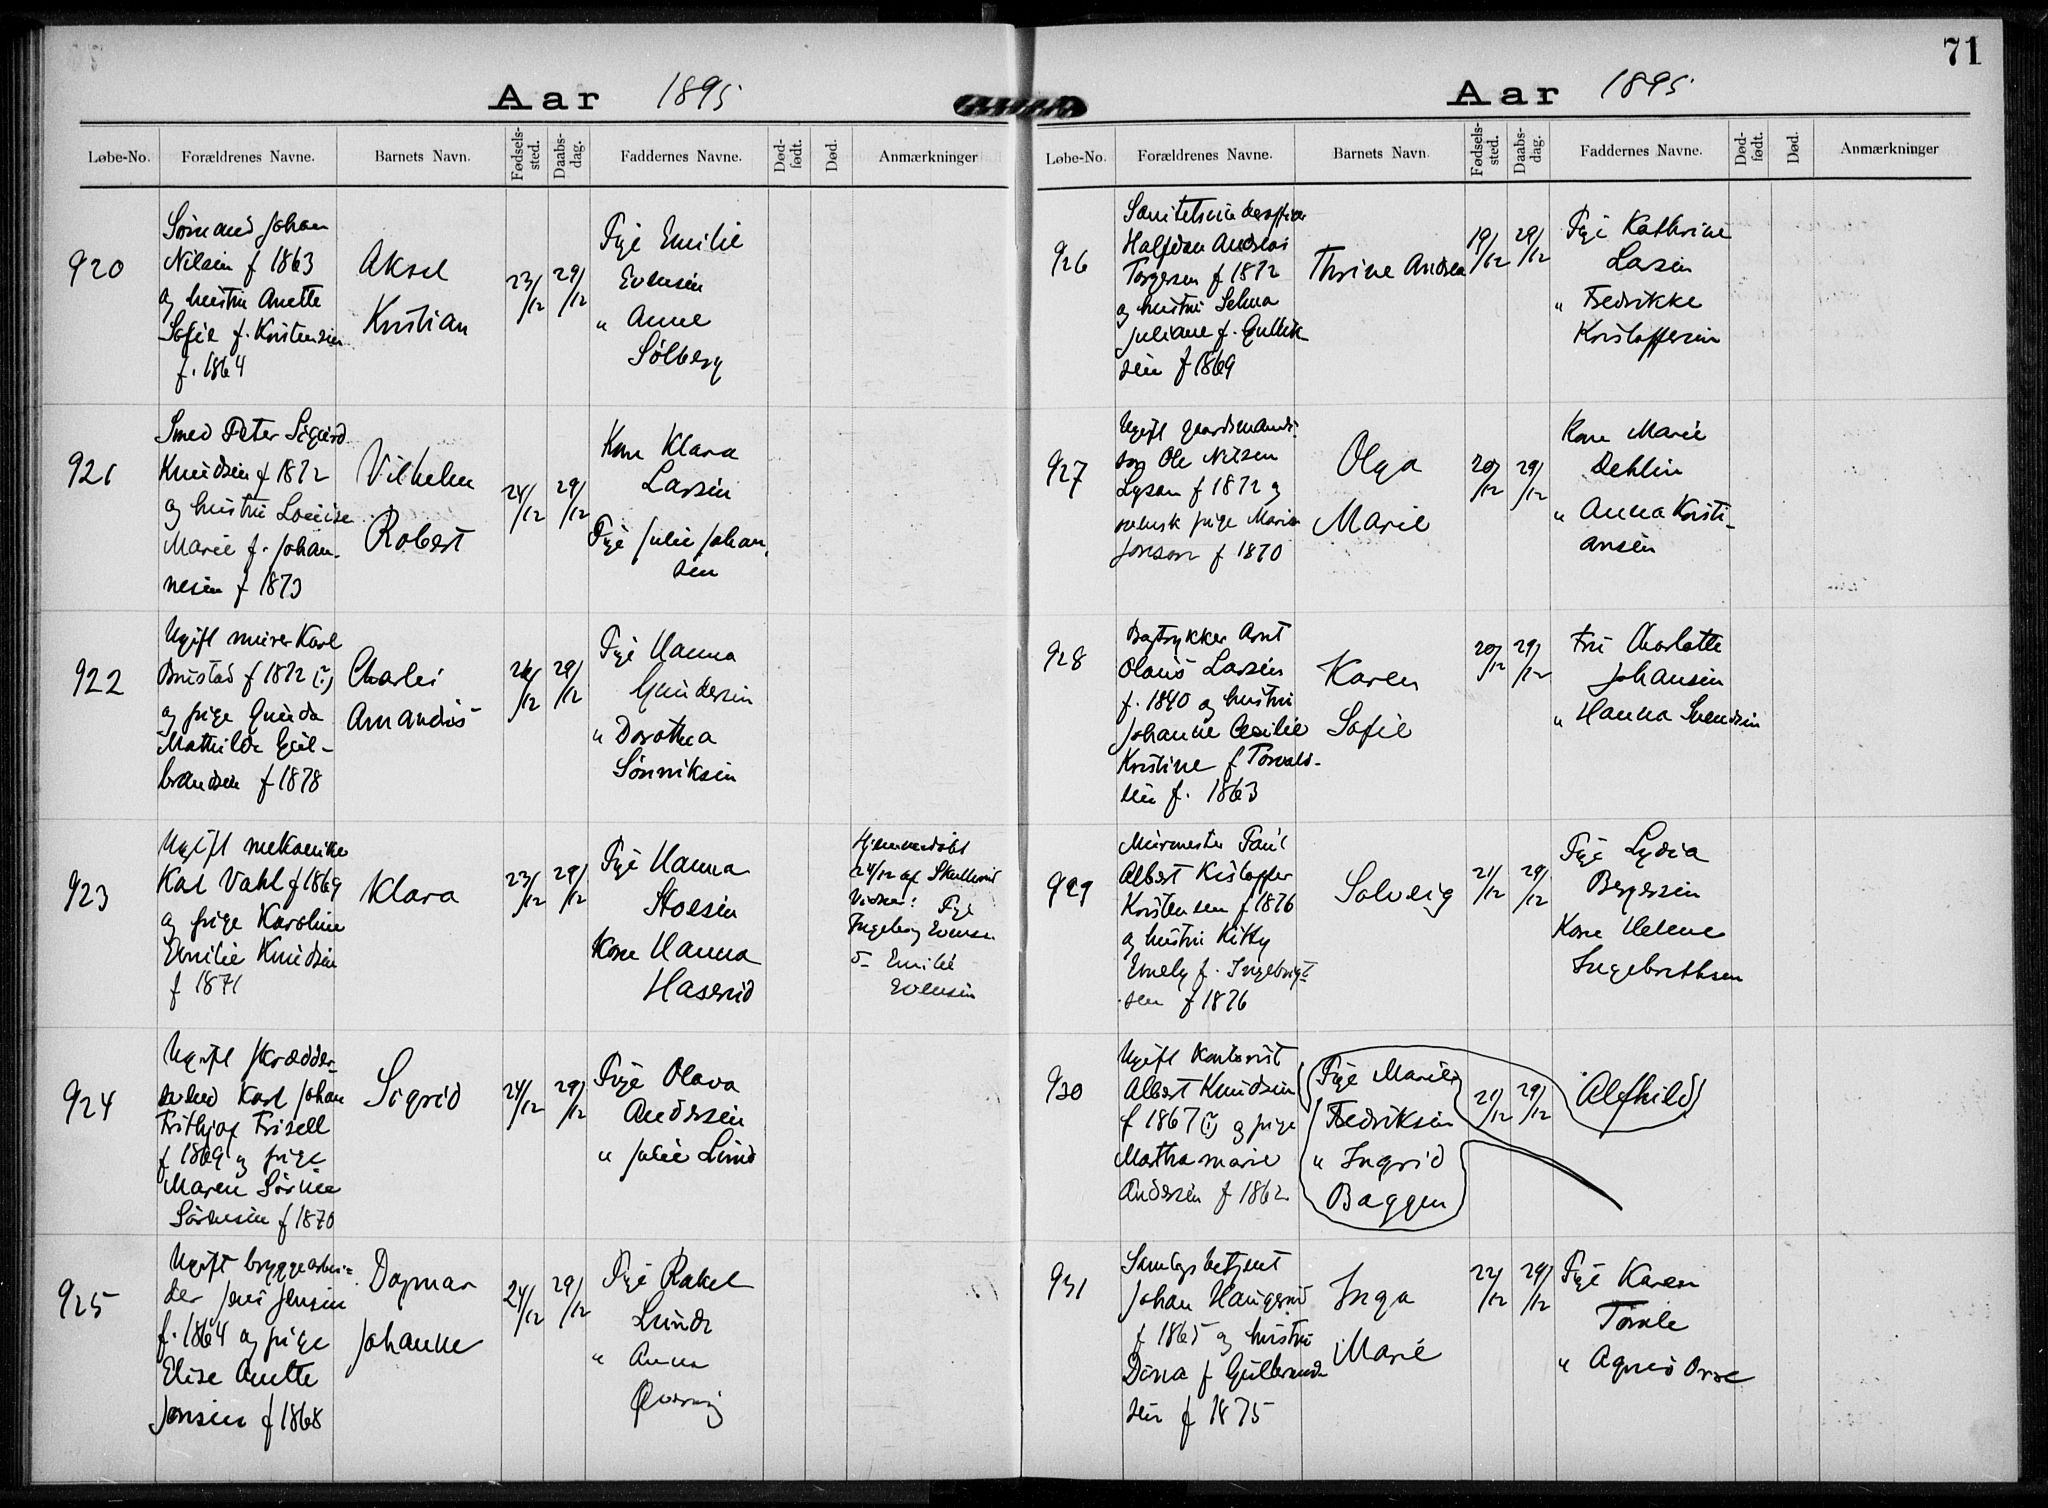 71
Aar 1895
Løbe-No. Forældrenes Navne. Barnets Navn. Fødsels-sted. Daabs-dag. Faddernes Navne. Død-født. Død. Anmærkninger
920
Sømand Johan
Nilsen f 1863
og hustru Anette
Sofie f. Kristensen
f. 1864
Aksel
Kristian
23/12
29/12
Pige Emilie
Evensen
" Anne
Sølberg
921
Smed Peter Sigurd
Knudsen f 1872
og hustru Louise
Marie f. Johan-
nesen f 1873
Vilhelm
Robert
24/12
29/12
Kone Klara
Larsen
Pige Julie Johan-
sen
922
Ugift murer Karl
Brustad f 1872 (?)
og pige Gunda
Mathilde Gul-
brandsen f 1878
Charles
Amandus
26/12
29/12
Pige Hanna
Gundersen
" Dorothea
Sønniksen
923
Ugift mekaniker
Karl Vahl f 1869
og pige Karoline
Emilie Knudsen
f 1871
Klara
23/12
29/12
Pige Hanna
Stoesen
Kone Hanna
Haserud
Hjemmedøbt
24/12 af
Vidner: Pige
Ingeborg Evensen
Emilie
Evensen
924
Ugift skrædder-
svend Karl Johan
Frithjof Frisell
f 1869 og pige
Maren Sørine
Sørensen f 1870
Sigrid
24/12
29/12
Pige Olava
Andersen
" Julie Lund
925
Ugift bryggearbei-
der Jens Jensen
f. 1864 og pige
Elise Anette
Jensen f 1868
Dagmar
Johanne
24/12
29/12
Pige Rakel
Lunde
" Anna
Aar 1895
Løbe-No. Forældrenes Navne. Barnets Navn. Fødsels-sted. Daabs-dag. Faddernes Navne. Død-født. Død. Anmærkninger
926
Halfdan Andreas
Torgersen f 1872
og hustru Selma
Juliane f. Gullik
sen f 1869
Thrine Andrea
19/12
29/12
Pige Kathrine
Larsen
" Fredrikke
Kristoffersen
927
Ugift gaardmands-
søn Ole Nilsen
f 1872 og
svensk pige Maria
Jonsson f 1870
Olga
Marie
20/12
29/12
Kone Marie
Dehlin
" Anna Kristi-
ansen
928
Bogtrykker Arnt
Olaus Larsen
f. 1840 og hustru
Johanne Cecilie
Kristine f Torvald-
sen f. 1863
Karen
Sofie
20/12
29/12
Fru Charlotte
Johansen
" Hanna Svendsen
929
Murmester Paul
Albert Kristoffer
Kristensen f 1876
og hustru Kitty
Emely f. Ingebrigt-
sen f 1876
Solveig
21/12
29/12
Pige Lydia
Bergersen
Kone Helene
Ingebrethsen
930
Ugift kontorist
Albert Knudsen
f 1867 (?) og pige
Martha Marie
Andersen f 1862
Pige Marie
Fredriksen
" Ingrid
Baggen
21/12
29/12
Alfhild
931
Samlagsbetjent
Johan Haugerud
f 1865 og hustru
Dina f Gulbrand-
sen f 1875
Inga
Marie
22/12
29/12
Pige Karen
Torale
" Agnes Orre